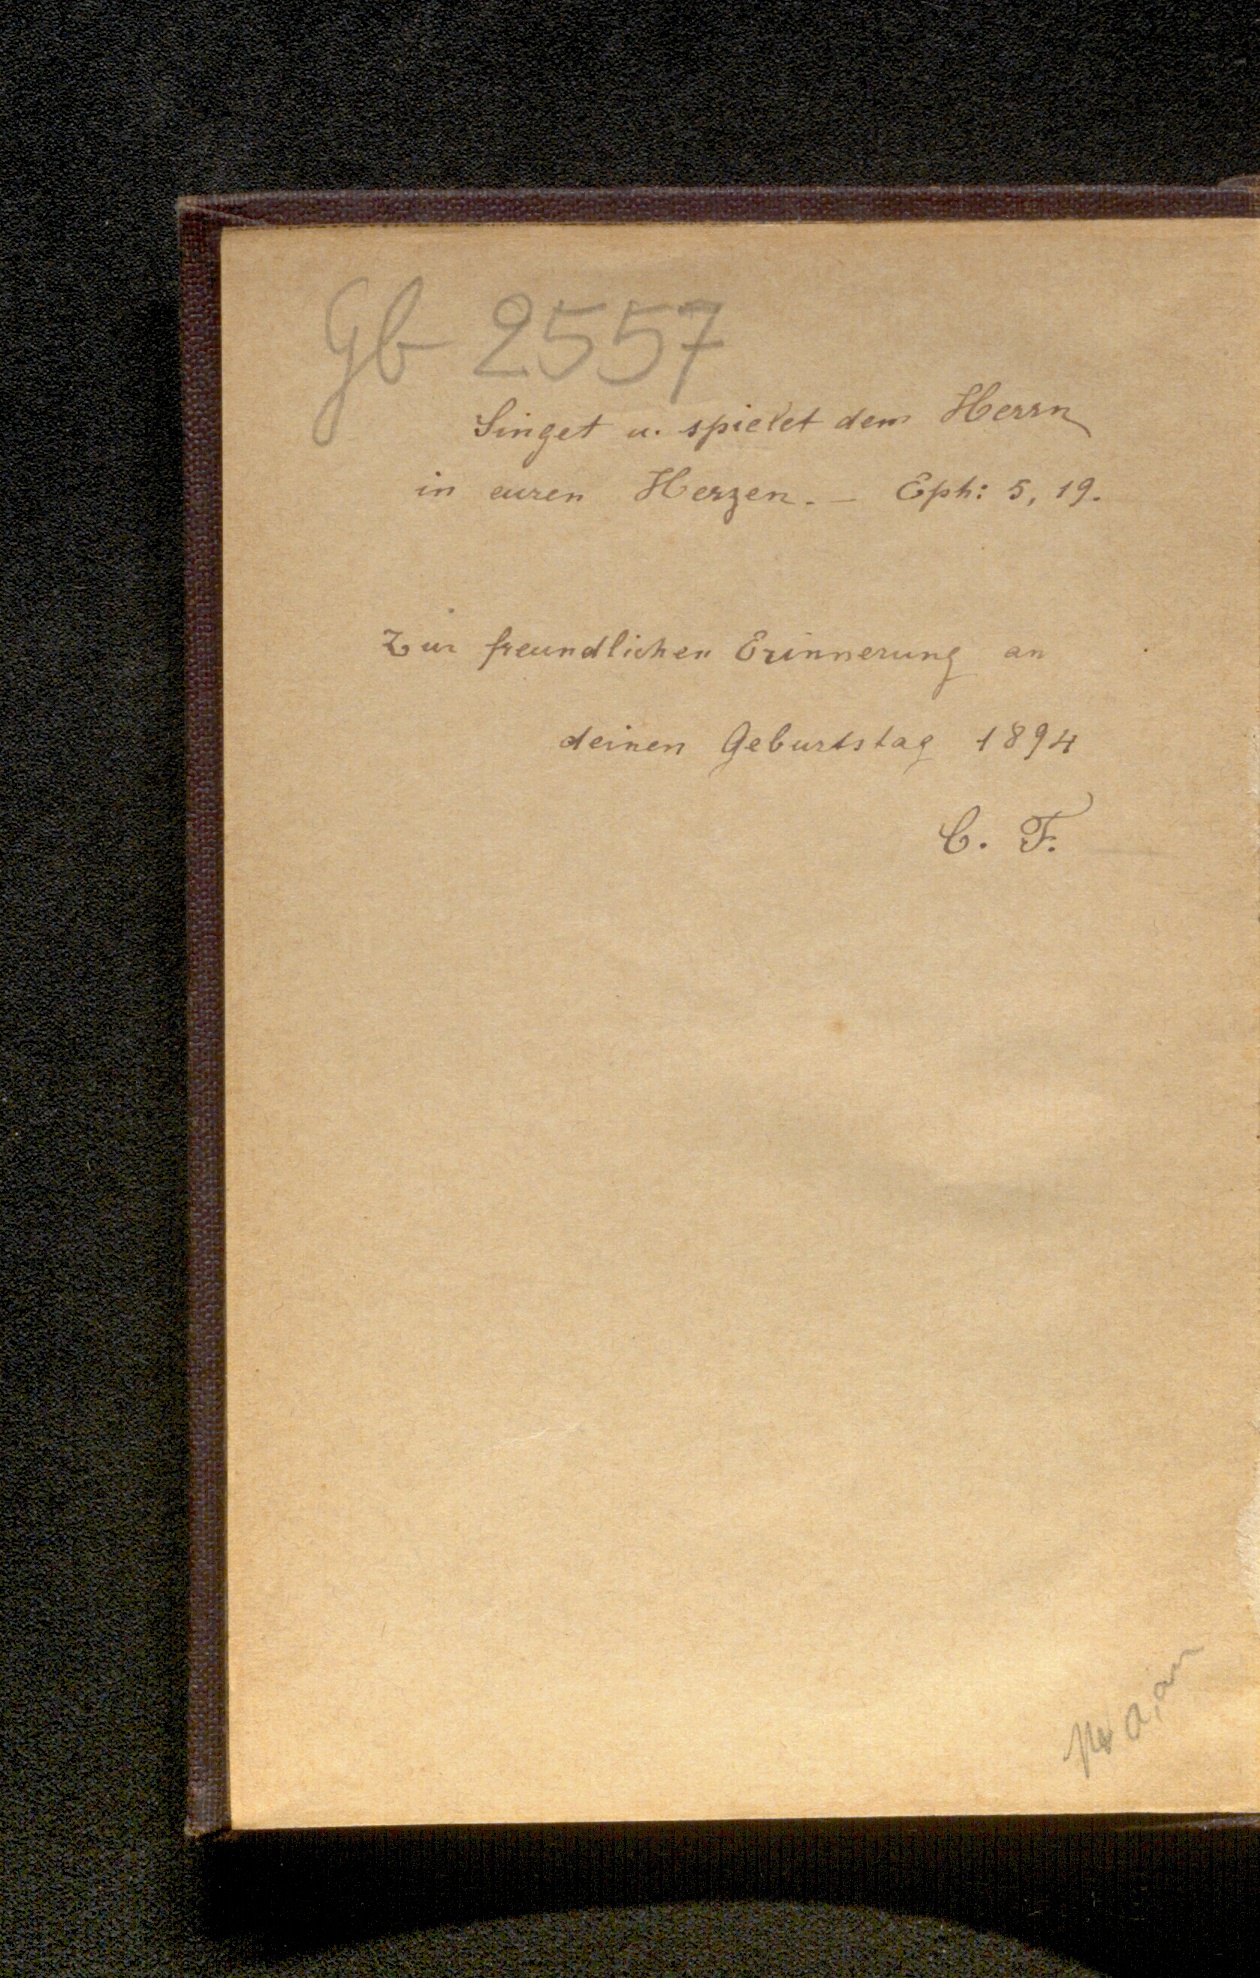 Gb 2557
Singet u. spielet dem Herrn
in euren Herzen. — Eph: 5, 19.
Zur freundlichen Erinnerung an
deinen Geburtstag 1894
C. F.